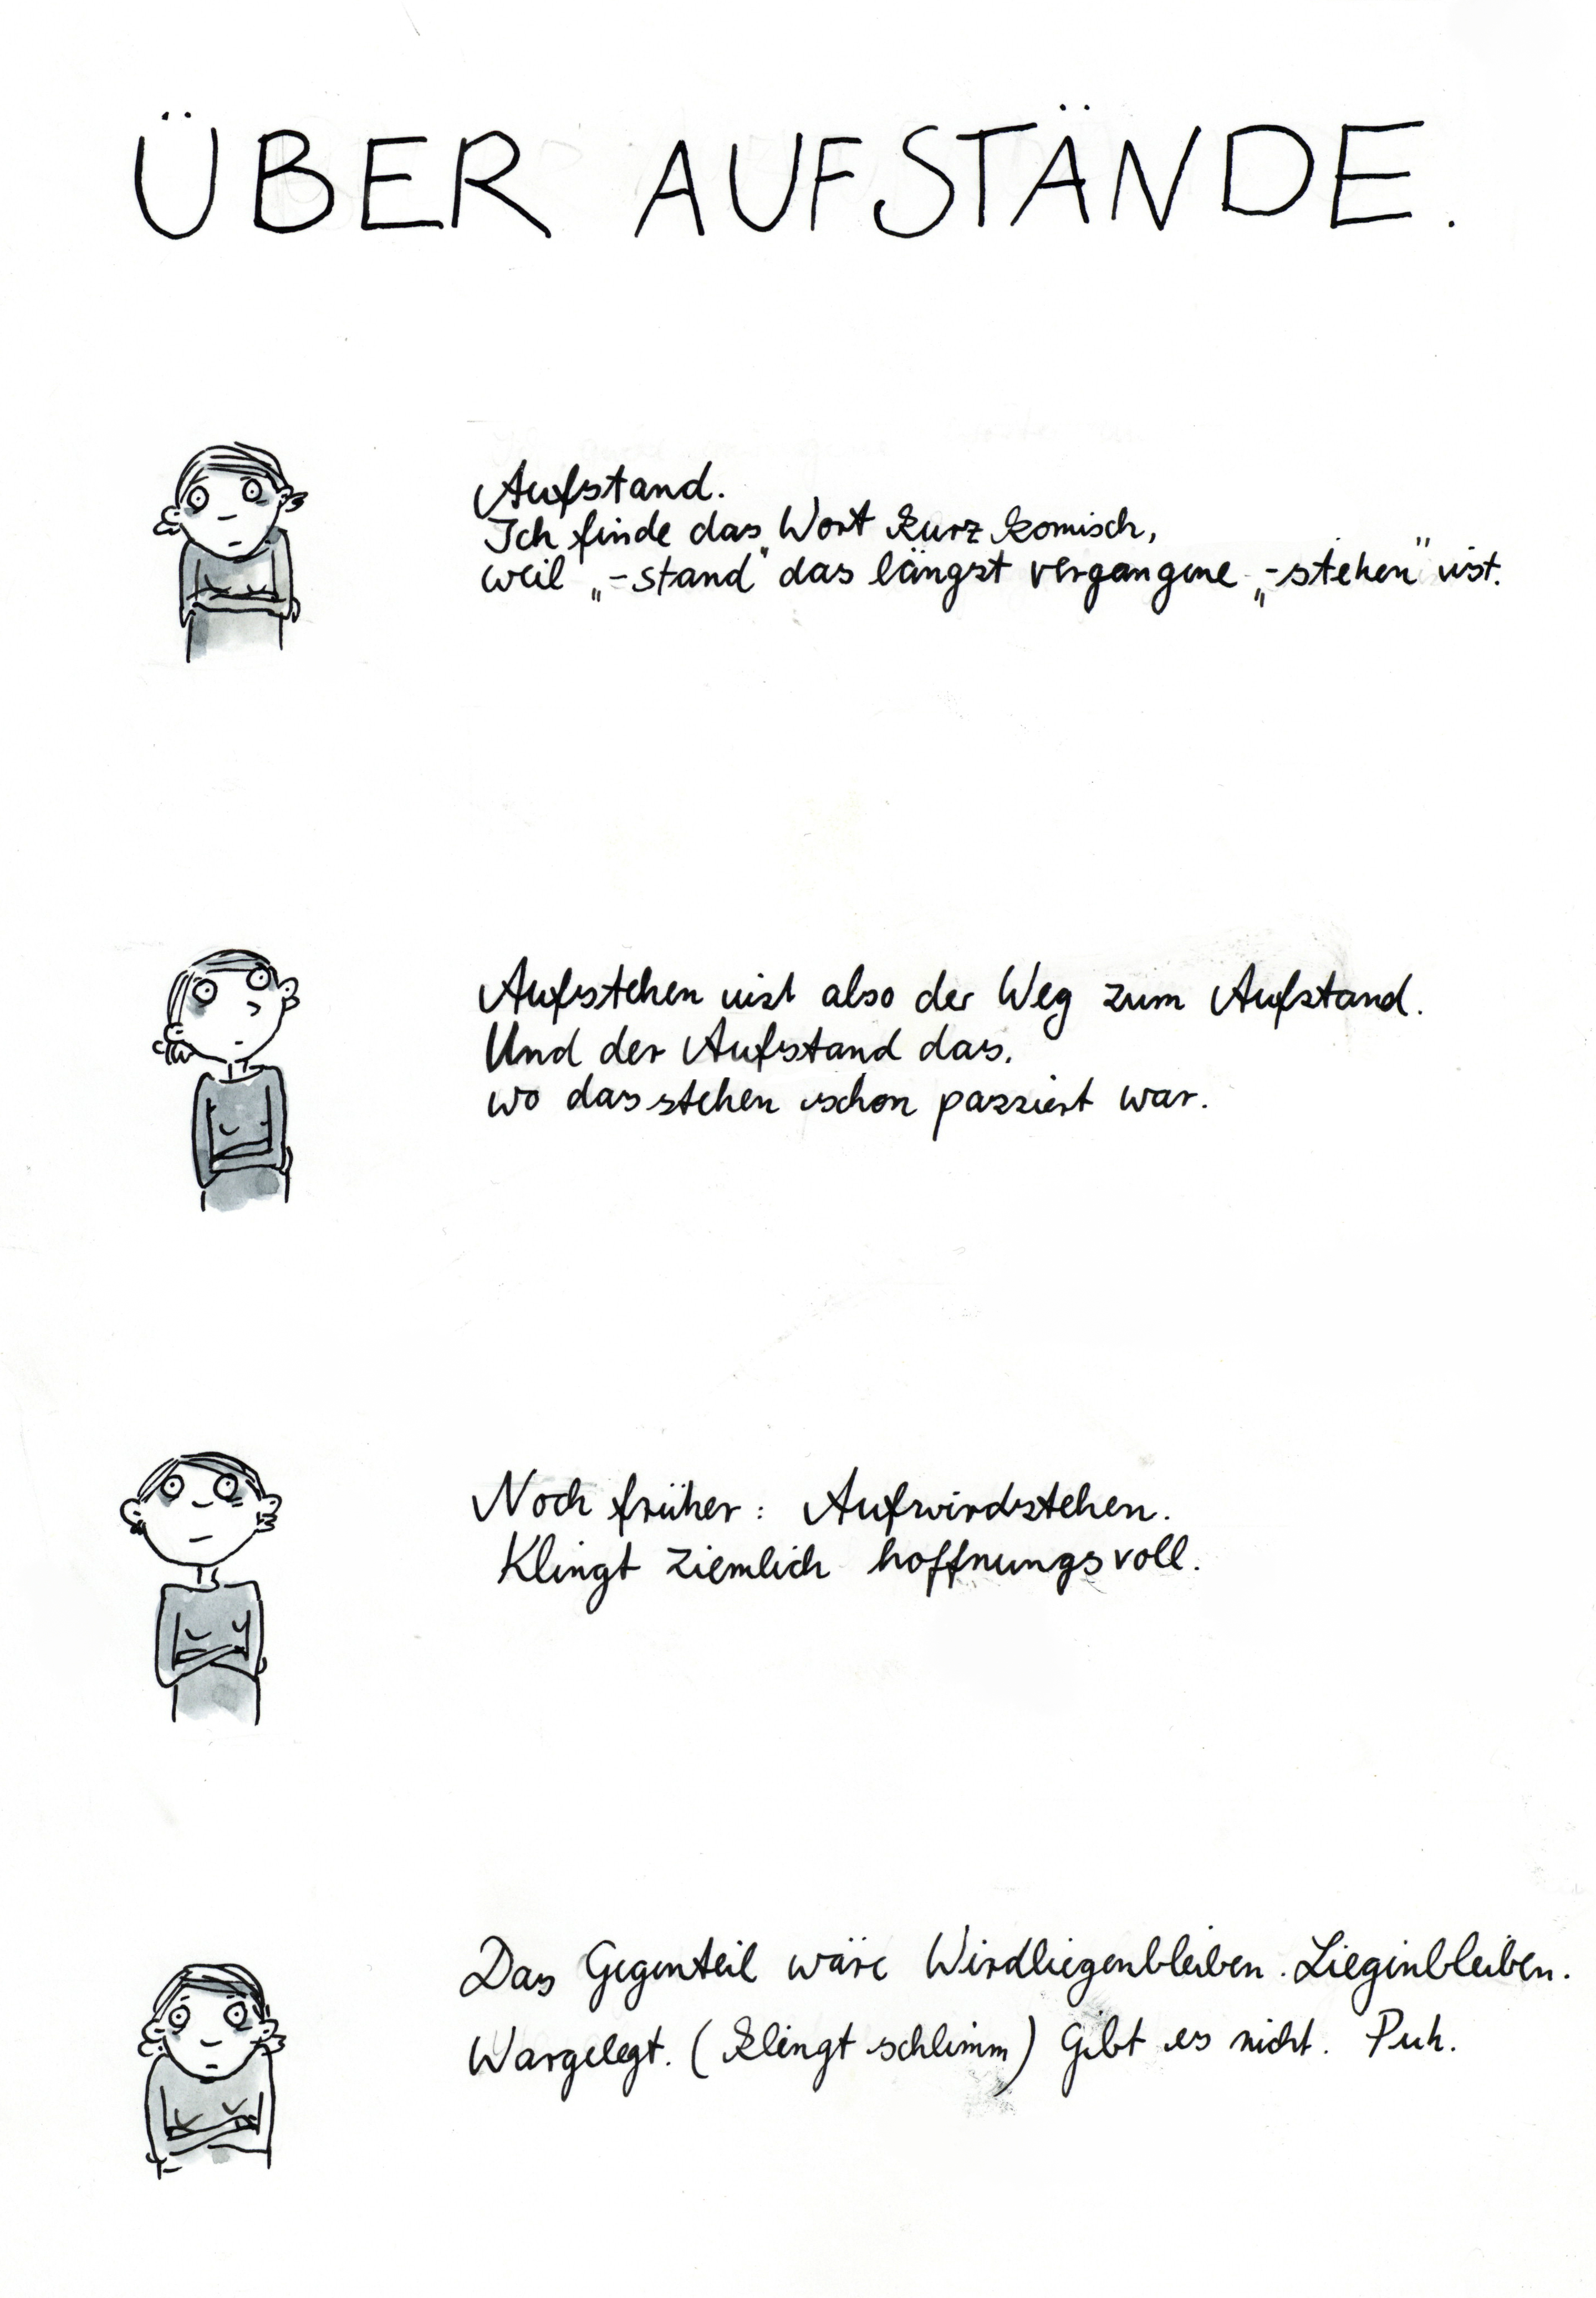 ÜBER AUFSTÄNDE.
Aufstand.
Ich finde das Wort kurz komisch,
weil „-stand" das längst vergangene „-stehen" ist.
Aufstehen ist also der Weg zum Aufstand.
Und der Aufstand das,
wo das stehen schon passiert war.
Noch früher: Aufwirdstehen.
Klingt ziemlich hoffnungsvoll.
Das Gegenteil wäre Wirdliegenbleiben. Liegenbleiben.
Wargelegt. (klingt schlimm) Gibt es nicht. Puh.